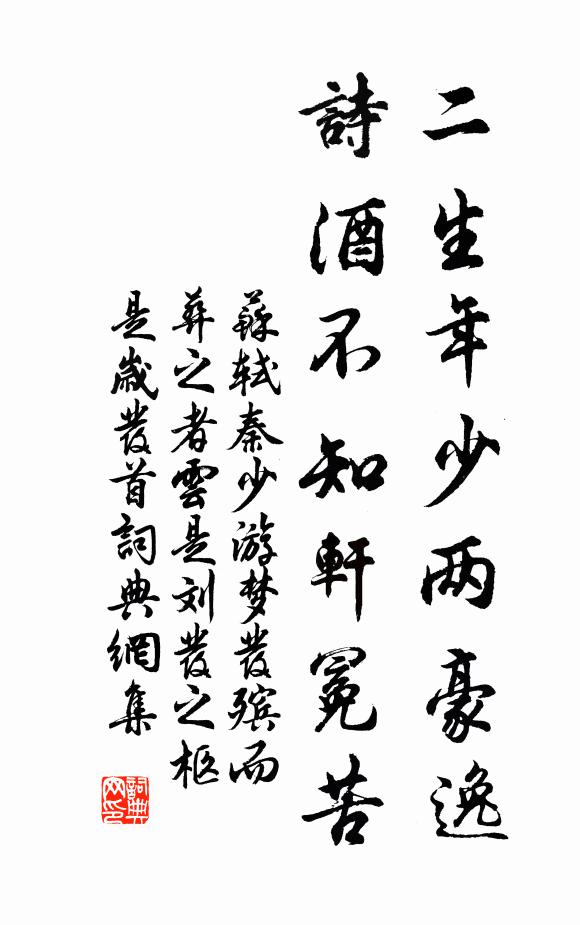 二生年少两豪逸
詩酒不知軒冕苦
蘇軾秦少游梦發殯而
葬之者雲是刘發之柩
是歲發首詞典網集
詞典
网印